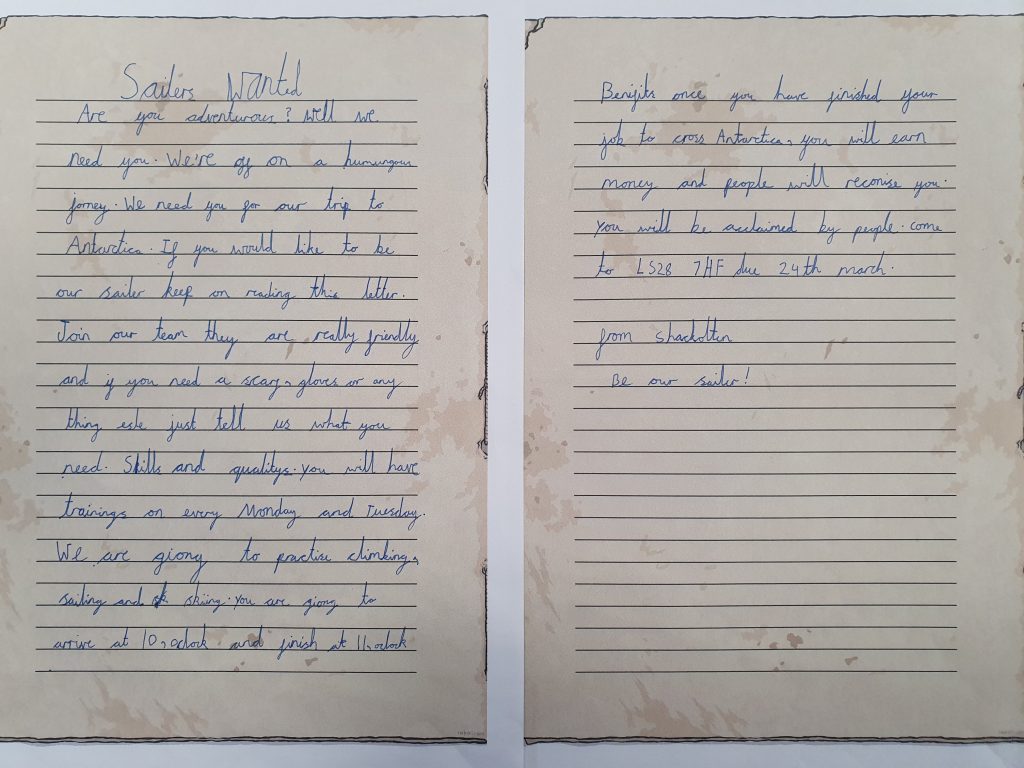 Sailers Wanted
Are you adventurous? Well we
need you. We're off on a humungous
jorney. We need you for our trip to
Antarctica. If you would like to be
our sailer keep on reading this letter.
Join our team they are really friendly
and if you need a scarf, gloves or any
thing esle just tell us what you
need. Skills and qualitys. you will have
trainings on every Monday and Tuesday.
We are giong to practise climbing,
sailing and skiing. You are giong to
arrive at 10,oclock and finish at 11,oclock
Benifits once you have finished your
job to cross Antarctica, you will earn
money and people will reconise you.
You will be acclaimed by people. come
to LS28 7HF due 24th march.
from shackolten
Be our sailer!